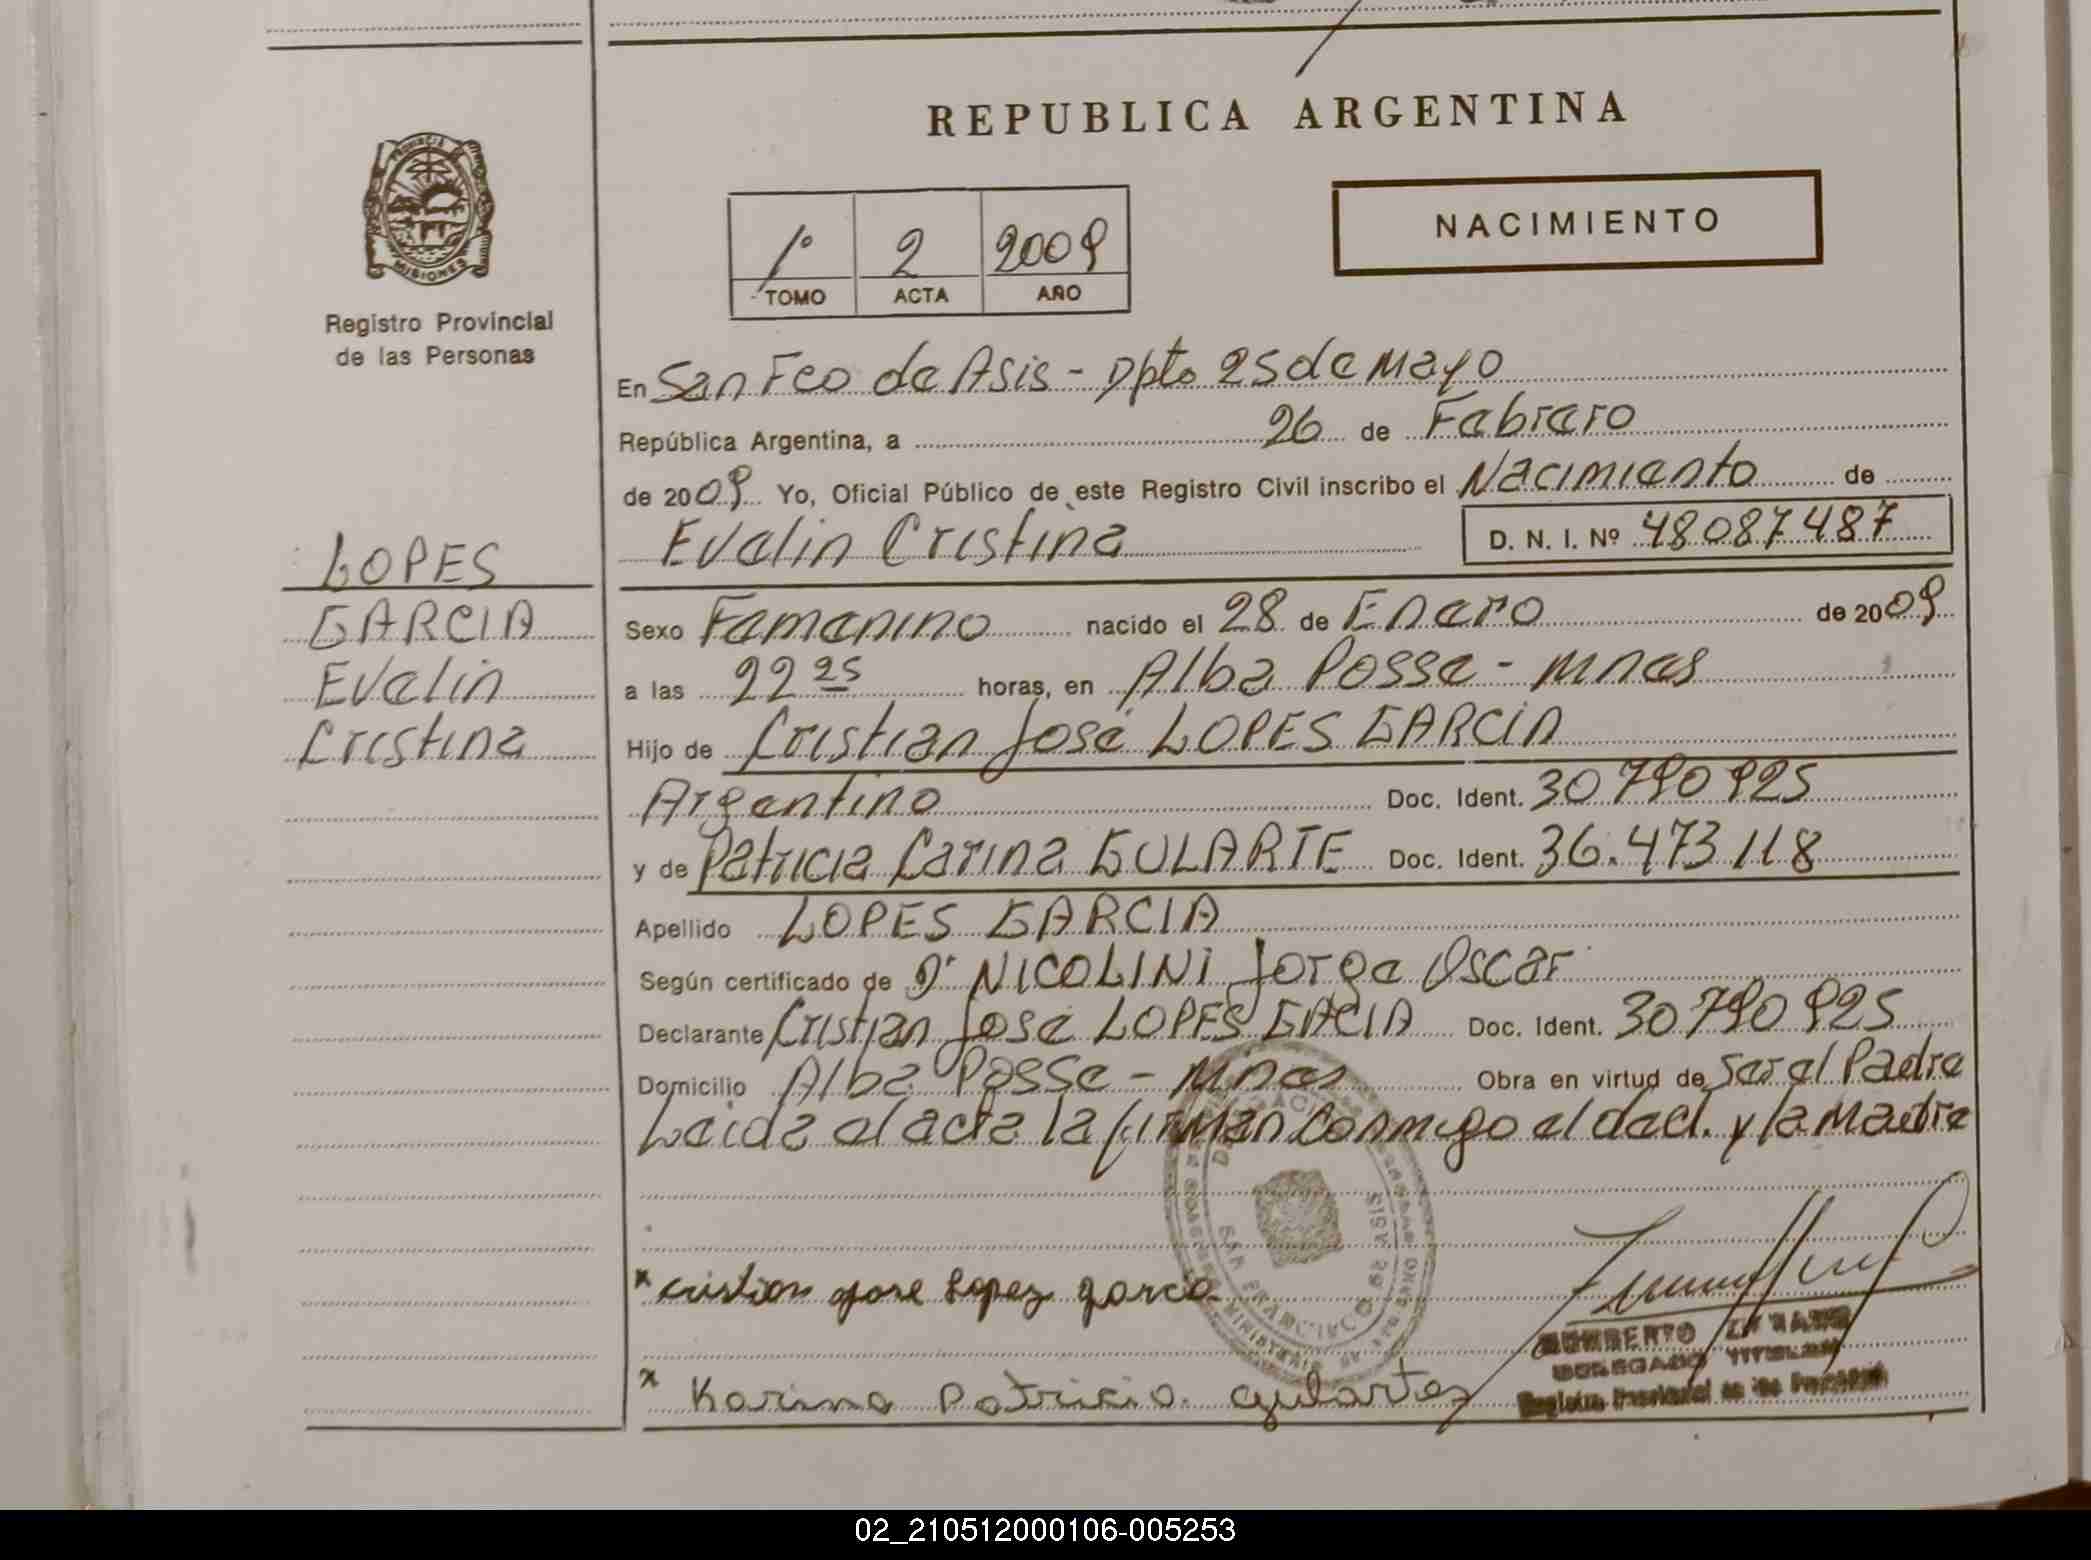 REPUBLICA ARGENTINA
PROVINCIA
MISIONES
Registro Provincial
de las Personas
NACIMIENTO
1º 2 2009
TOMO ACTA AÑO
En San Fco de Asis - Dpto 25 de Mayo
República Argentina, a 26 de Febrero
de 2009 Yo, Oficial Público de este Registro Civil inscribo el Nacimiento de
Evelin Cristina D. N. I. Nº 48087487
LOPES
GARCIA
Evelin
Cristina
Sexo Femenino nacido el 28 de Enero de 2009
a las 22 25 horas, en Alba Posse - Mnes
Hijo de Cristian José LOPES GARCIA
Argentino Doc. Ident. 30790925
y de Patricia Carina GULARTE Doc. Ident. 36.473.118
Apellido LOPES GARCIA
Según certificado de Dr NICOLINI Jorge Oscar
Declarante Cristian José LOPES GACIA Doc. Ident. 30790925
Domicilio Alba Posse - Mnes Obra en virtud de Ser el Padre
Leida el acta la firman conmigo el decl. y la Madre
x cristian jose lopez garcia
SAN FRANCISCO DE ASIS
x Karina Patricia gulartez
02_210512000106-005253